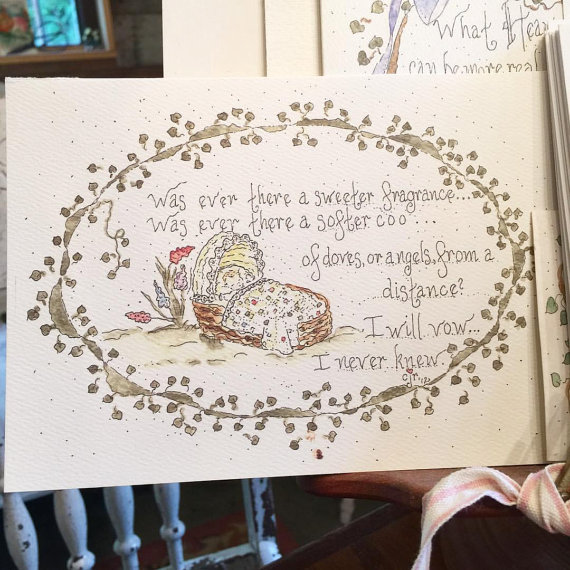 What I Tea
can be more real
Was ever there a sweeter fragrance...
Was ever there a softer coo...
of doves, or angels, from a
distance?
I will vow...
I never knew